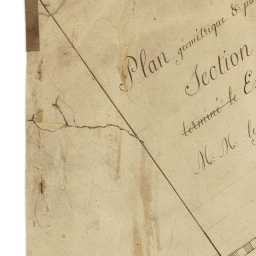 Plan géométrique &
Section
terminé le
M. M.